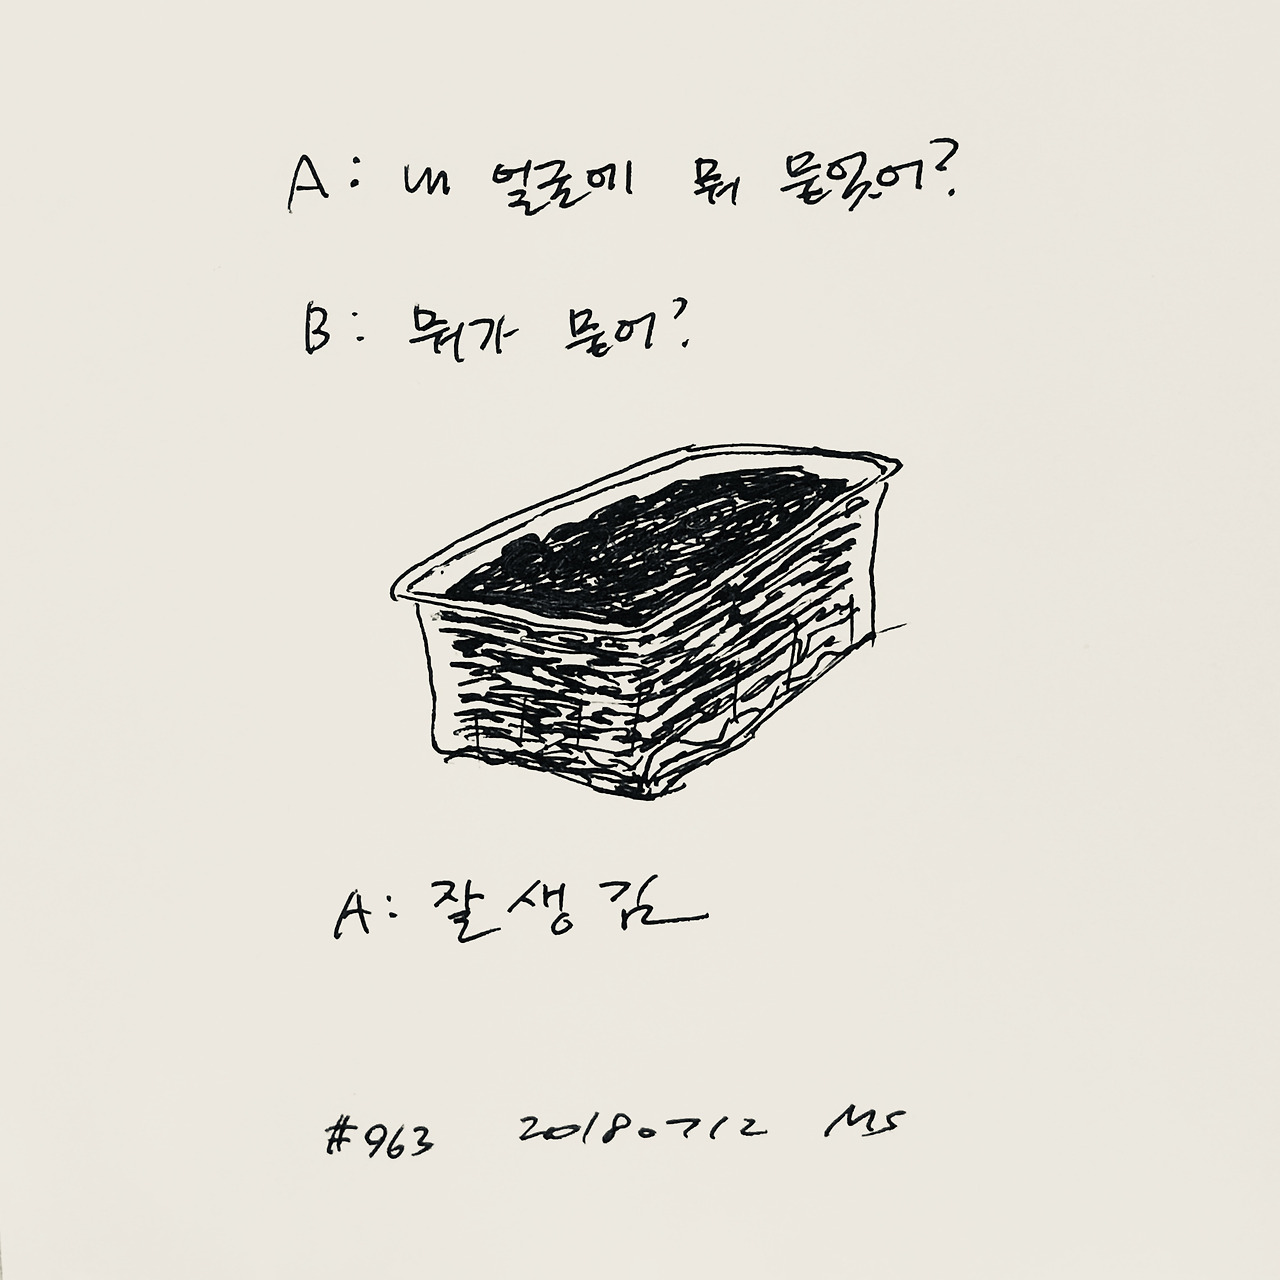 A: 내 얼굴에 뭐 묻었어?
B: 뭐가 묻어?
A: 잘생김
#963 20180712 MS